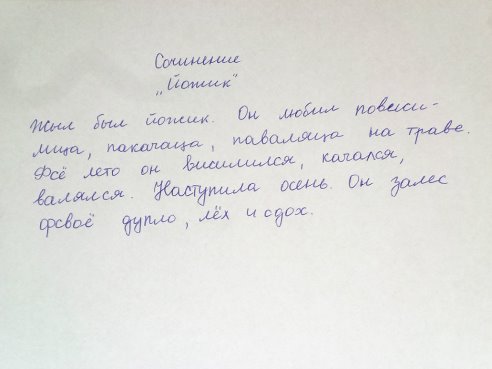 Сочинение
„Йожик“
Жыл был йожик. Он любил повесили-
мица, пакачаца, паваляца на траве.
Фсё лето он висимился, качался,
валялся. Наступила осень. Он залес
фсваё дупло, лёх и сдох.